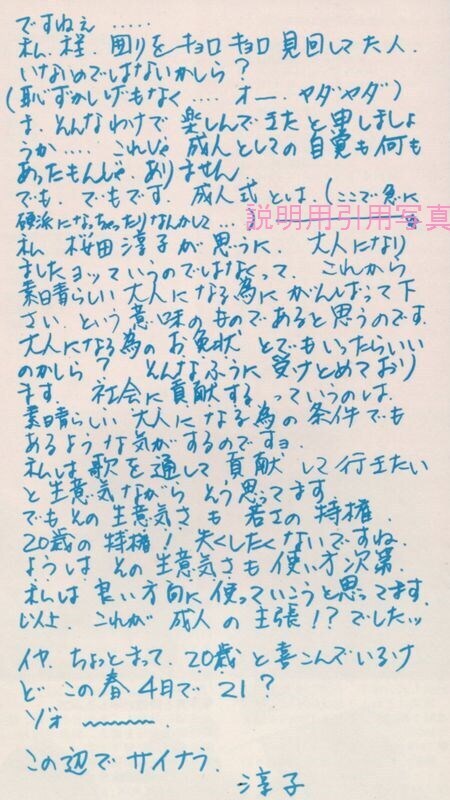 ですねぇ .....
私. 様. 周りをキョロキョロ見回してた人.
いないのではないかしら？
(恥ずかしげもなく .... オー. ヤダヤダ)
ま. そんなわけで 楽しんできたと申しましょ
うか..... これじゃ 成人としての自覚も何も
あったもんじゃ. ありません
でも. でもです. 成人式とは (ここで急に
硬派になっちゃったりなんかして...)
説明用引用写真
私 桜田淳子が思うに. 大人になり
ましたョッていうのではなくって. これから
素晴らしい大人になる為にがんばって下
さい. という意味のものであると思うのです.
大人になる為のお免状 とでもいったらいい
のかしら？ そんなふうに 受けとめており
ます. 社会に貢献する っていうのは.
素晴らしい大人になる為の条件でも
あるような気がするのですョ.
私は歌を通して 貢献して行きたい
と生意気ながら そう思ってます
でもその生意気さも 若さの特権.
20歳の特権！ 失くしたくないですね.
ようは その生意気さも 使い方次第.
私は 良い方向に 使っていこうと思ってます.
以上. これが 成人の主張！？でしたッ
イヤ. ちょっとまって. 20歳と喜こんでいるけ
ど この春4月で 21？
ゾォ〜〜〜.
この辺でサイナラ.
淳子